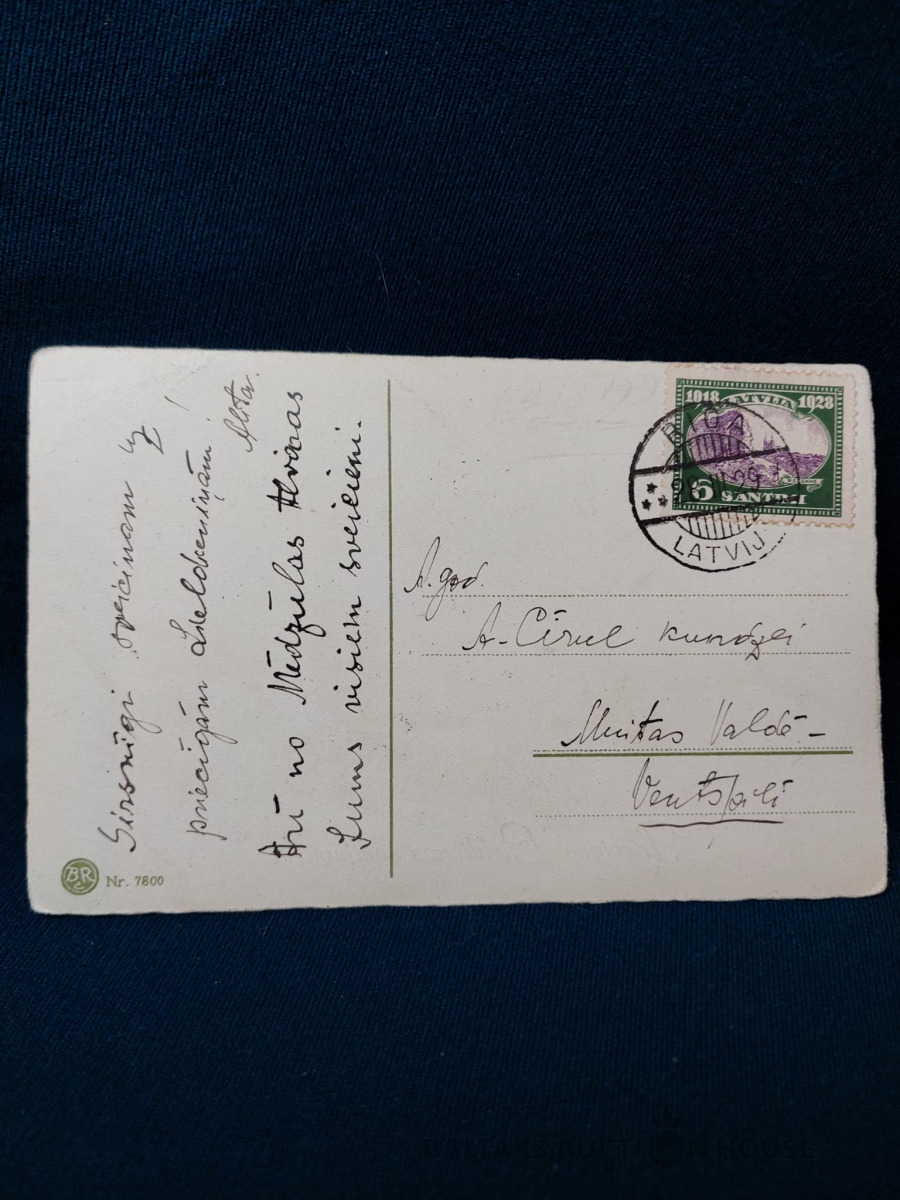 Sirsnīgi sveicinam uz
priecīgām Lieldieniņām!
Alita.
Arī no Mēdzulas Alvinas
Jums visiem sveicieni.
BR
Nr. 7800
1918 LATVIJA 1928
6 SANTIMI
RIGA
LATVIJ
A. god.
A. Cīrul kundzei
Muitas Valdē –
Ventspilī
BALTARS AUCTION HOUSE